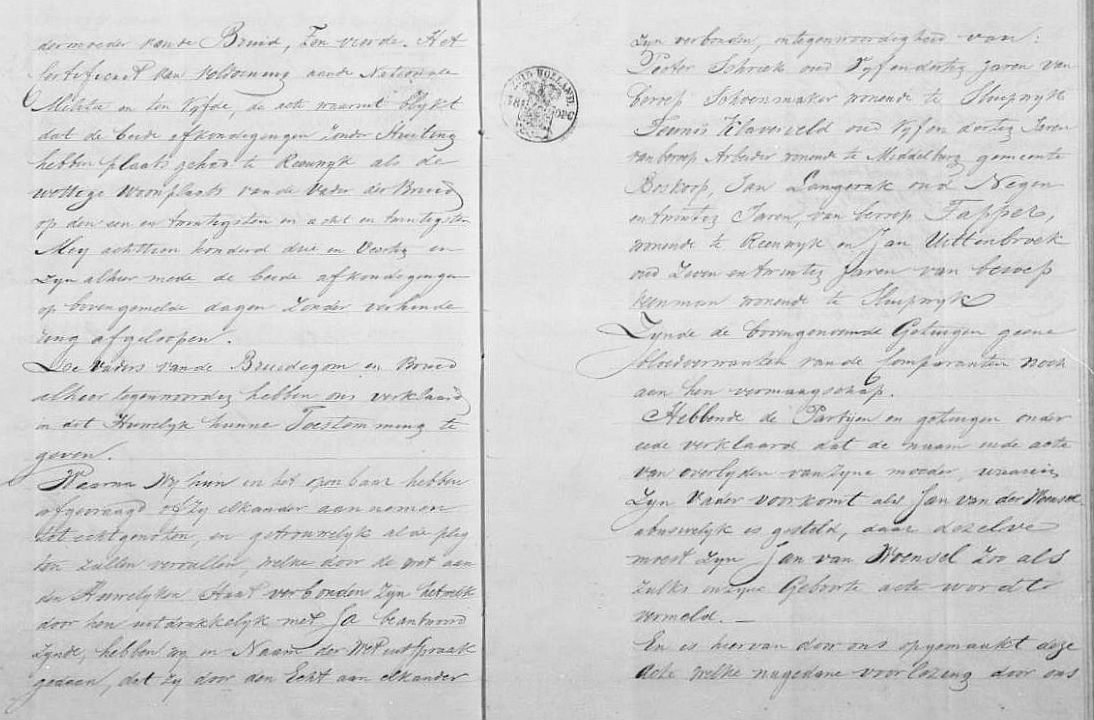 der moeder van de Bruid, Ten vierde. Het
Certificaat van voldoening aan de Nationale
Militie en ten Vyfde, de acte waaruit blykt
dat de beide afkondigingen zonder Stuiting
hebben plaats gehad te Reeuwyk als de
wettige woonplaats van de Vader der Bruid
op den een en twintigsten en acht en twintigsten
Mey achttien honderd drie en Veertig en
Zyn alhier mede de beide afkondigingen
op bovengemelde dagen Zonder verhinde
ring afgeloopen.
De Vaders van de Bruidegom en Bruid
alhier tegenwoordig hebben ons verklaard
in dit Huwelyk hunne Toestemming te
geven.
Waarna Wy hun in het openbaar hebben
afgevraagd of Zy elkander aannemen
tot echtgenoten, en getrouwelyk al de plig
ten zullen vervullen, welke door de wet aan
den Huwelyken Staat verbonden Zyn hetwelk
door hen uitdrukkelyk met Ja beantwoord
Zynde, hebben wy in Naam der Wet uitspraak
gedaan, dat zy door den Echt aan elkander
ZUID HOLLAND
Zyn verbonden, in tegenwoordigheid van:
Pieter Schriek oud Vyf en dertig Jaren van
beroep Schoenmaker wonende te Sluipwyk
Teunis Klaverveld oud Vyf en dertig Jaren
van beroep Arbeider wonende te Middelburg gemeente
Boskoop, Jan Langerak oud Negen
en twintig Jaren, van beroep Tapper,
wonende te Reeuwyk en Jan Uittenbroek
oud Zeven en twintig Jaren van beroep
veenman wonende te Sluipwyk
Zynde de bovengenoemde Getuigen geene
bloedverwanten van de Comparanten noch
aan hen vermaagschap.
Hebbende de Partyen en getuigen onder
eede verklaard dat de naam in de acte
van overlyden van Zyne moeder, waarin
Zyn Vader voorkomt als Jan van der Wensel
abusivelyk is gesteld, daar dezelve
moest Zyn Jan van Woensel Zoo als
Zulks in Zyne Geboorte acte wordt
vermeld.—
En is hiervan door ons opgemaakt deze
Acte welke na gedane voorlezing door ons